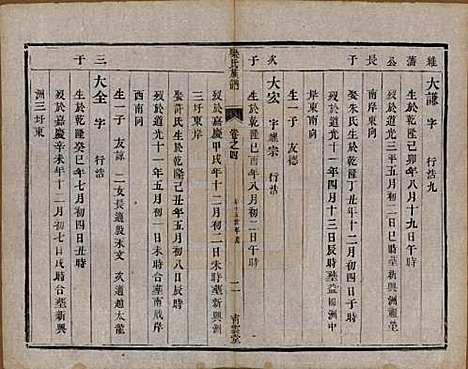 維藩公長子
大謙 字 行浩九
生於乾隆乙卯年八月十九日午時
歿於道光三年五月初二日巳時葬新興洲
南岸東向
娶朱氏生於乾隆丁丑年十二月初四日子時
歿於道光十一年四月十三日辰時葬益
洲中岸東南向
生一子 友德
次子
大宏 字 宗 行浩
生於乾隆己酉年八月初二日午時
族譜
卷之四
二
南雲堂
歿於嘉慶甲戌年十二月初二日未時葬新興洲
三圩東岸
娶許氏生於乾隆己丑年五月初八日辰時
歿於道光十一年五月初六日寅時合葬南岸
西南向
生一子 友諒 二女長適殷永文 次適趙太龍
三子
大全 字 行浩
生於乾隆癸巳年七月初四日丑時
歿於嘉慶辛未年十二月初七日戌時合葬新興
洲三圩東